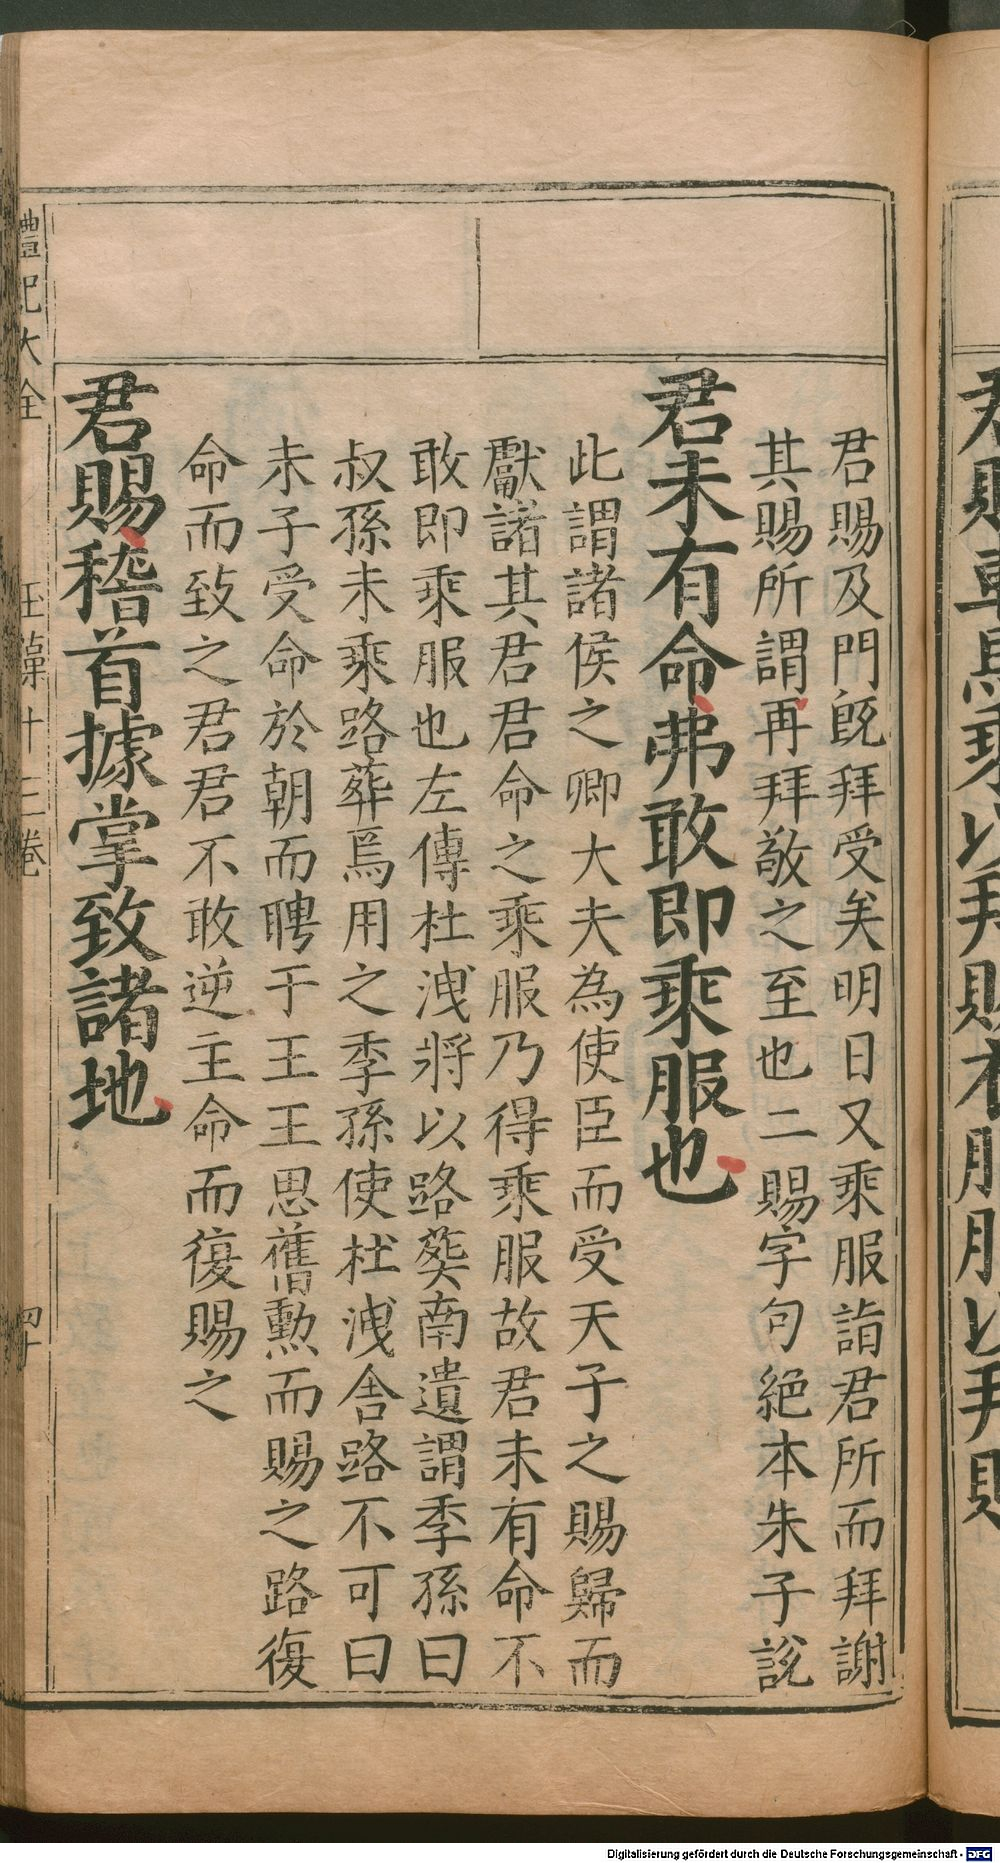 君賜及門旣拜受矣明日又乘服詣君所而拜謝
其賜所謂再拜敬之至也二賜字句絕本朱子說
君未有命弗敢即乘服也
此謂諸侯之卿大夫為使臣而受天子之賜歸而
獻諸其君君命之乘服乃得乘服故君未有命不
敢即乘服也左傳杜洩將以路葬南遺謂季孫曰
叔孫未乘路葬焉用之季孫使杜洩舍路不可曰
夫子受命於朝而聘于王王思舊勳而賜之路復
命而致之君君不敢逆主命而復賜之
君賜稽首據掌致諸地
禮記大全 玉藻十三卷 四十
Digitalisierung gefördert durch die Deutsche Forschungsgemeinschaft - DFG